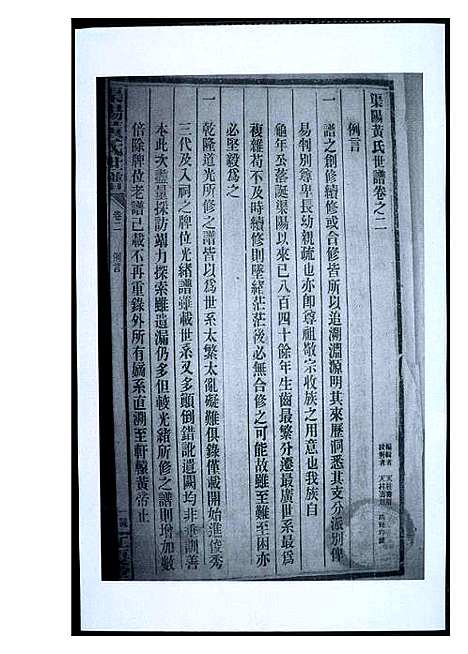 渠陽黃氏世譜卷之二
例言
一 譜之創修續修或合修皆所以追溯淵源明其來歷洞悉其支分派別俾
易判別尊卑長幼親疏也亦即尊祖敬宗收族之用意也我族自
龜年公落誕渠陽以來已八百四十餘年生齒最繁分遷最廣世系最為
複雜苟不及時續修則墜緒茫茫後必無合修之可能故雖至難至困亦
必堅毅為之
一 乾隆道光所修之譜皆以為世系太繁太亂礙難俱錄僅載開始進俊秀
三代及入祠之牌位光緒譜雖載世系又多顛倒錯訛遺闕均非垂訓善
本此次盡量採訪竭力探索雖遺漏仍多但較光緒所修之譜則增加數
倍除牌位老譜已載不再重錄外所有嫡系直溯至軒轅黃帝止
渠陽黃氏世譜
卷二
例言